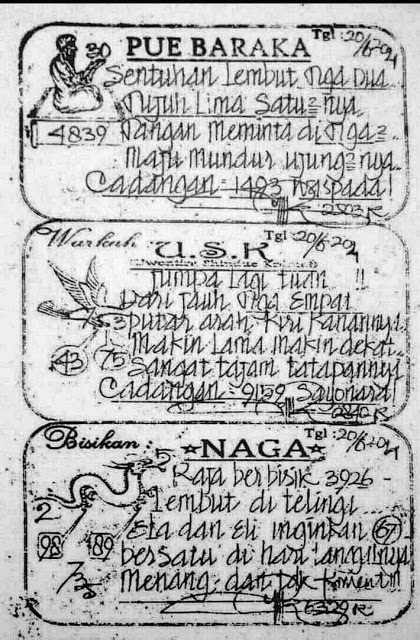 PUE BARAKA
Tgl : 20/6-2024
30
4839
Sentuhan Lembut Nga Dua
Tujuh Lima Satu2 nya
Jangan Meminta di Nga2
Maju Mundur ujung2 nya
Cadangan = 1493 Waspada!
2503 R
Warkah :
U.S.K
Tgl : 20/6-2024
Jumpa lagi tuan !!
Dari Jauh Nga Empat
putar arah kiri kanannya
Makin lama makin dekat
Sangat tajam tatapannya
43
75
Cadangan = 9159 Sayonara!
2840 R
Bisikan :
NAGA
Tgl : 20/6-2024
5
Raja berbisik 3926 -
Lembut di telinga
2
Eta dan Eli inginkan 67 -
98
189
bersatu di hari
Menang dan tdk Koment!!!
6329 R